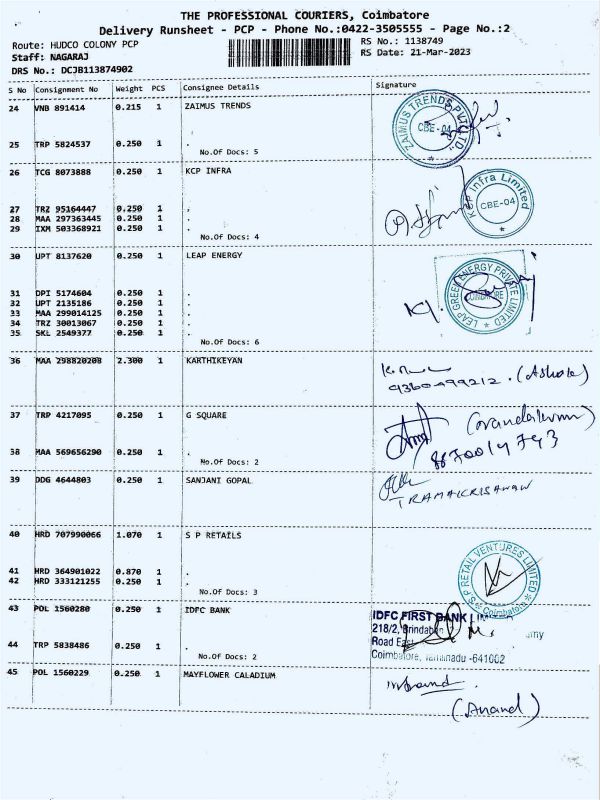 THE PROFESSIONAL COURIERS, Coimbatore
Delivery Runsheet - PCP - Phone No.:0422-3505555 - Page No.:2
Route: HUDCO COLONY PCP RS No.: 1138749
Staff: NAGARAJ RS Date: 21-Mar-2023
DRS No.: DCJB113874902
S No Consignment No Weight PCS Consignee Details Signature
24 VNB 891414 0.215 1 ZAIMUS TRENDS
ZAIMUS TRENDS PVT LTD. CBE-04
25 TRP 5824537 0.250 1 .
No.Of Docs: 5
26 TCG 8073888 0.250 1 KCP INFRA
KCP Infra Limited CBE-04
27 TRZ 95164447 0.250 1 .
28 MAA 297363445 0.250 1 .
29 IXM 503368921 0.250 1 .
No.Of Docs: 4
30 UPT 8137620 0.250 1 LEAP ENERGY
LEAP GREEN ENERGY PRIVATE LIMITED
31 DPI 5174604 0.250 1 .
32 UPT 2135186 0.250 1 .
33 MAA 299014125 0.250 1 .
34 TRZ 30013067 0.250 1 .
35 SKL 2549377 0.250 1 .
No.Of Docs: 6
36 MAA 298820208 2.300 1 KARTHIKEYAN
(Ashok)
37 TRP 4217095 0.250 1 G SQUARE
38 MAA 569656290 0.250 1 .
No.Of Docs: 2
39 DDG 4644803 0.250 1 SANJANI GOPAL
40 HRD 707990066 1.070 1 S P RETAILS
S P RETAIL VENTURES LIMITED Coimbatore
41 HRD 364901022 0.870 1 .
42 HRD 333121255 0.250 1 .
No.Of Docs: 3
43 POL 1560280 0.250 1 IDFC BANK
IDFC FIRST BANK
218/2,
Road
Coimbatore, Tamilnadu -641002
44 TRP 5838486 0.250 1 .
No.Of Docs: 2
45 POL 1560229 0.250 1 MAYFLOWER CALADIUM
(Anand)